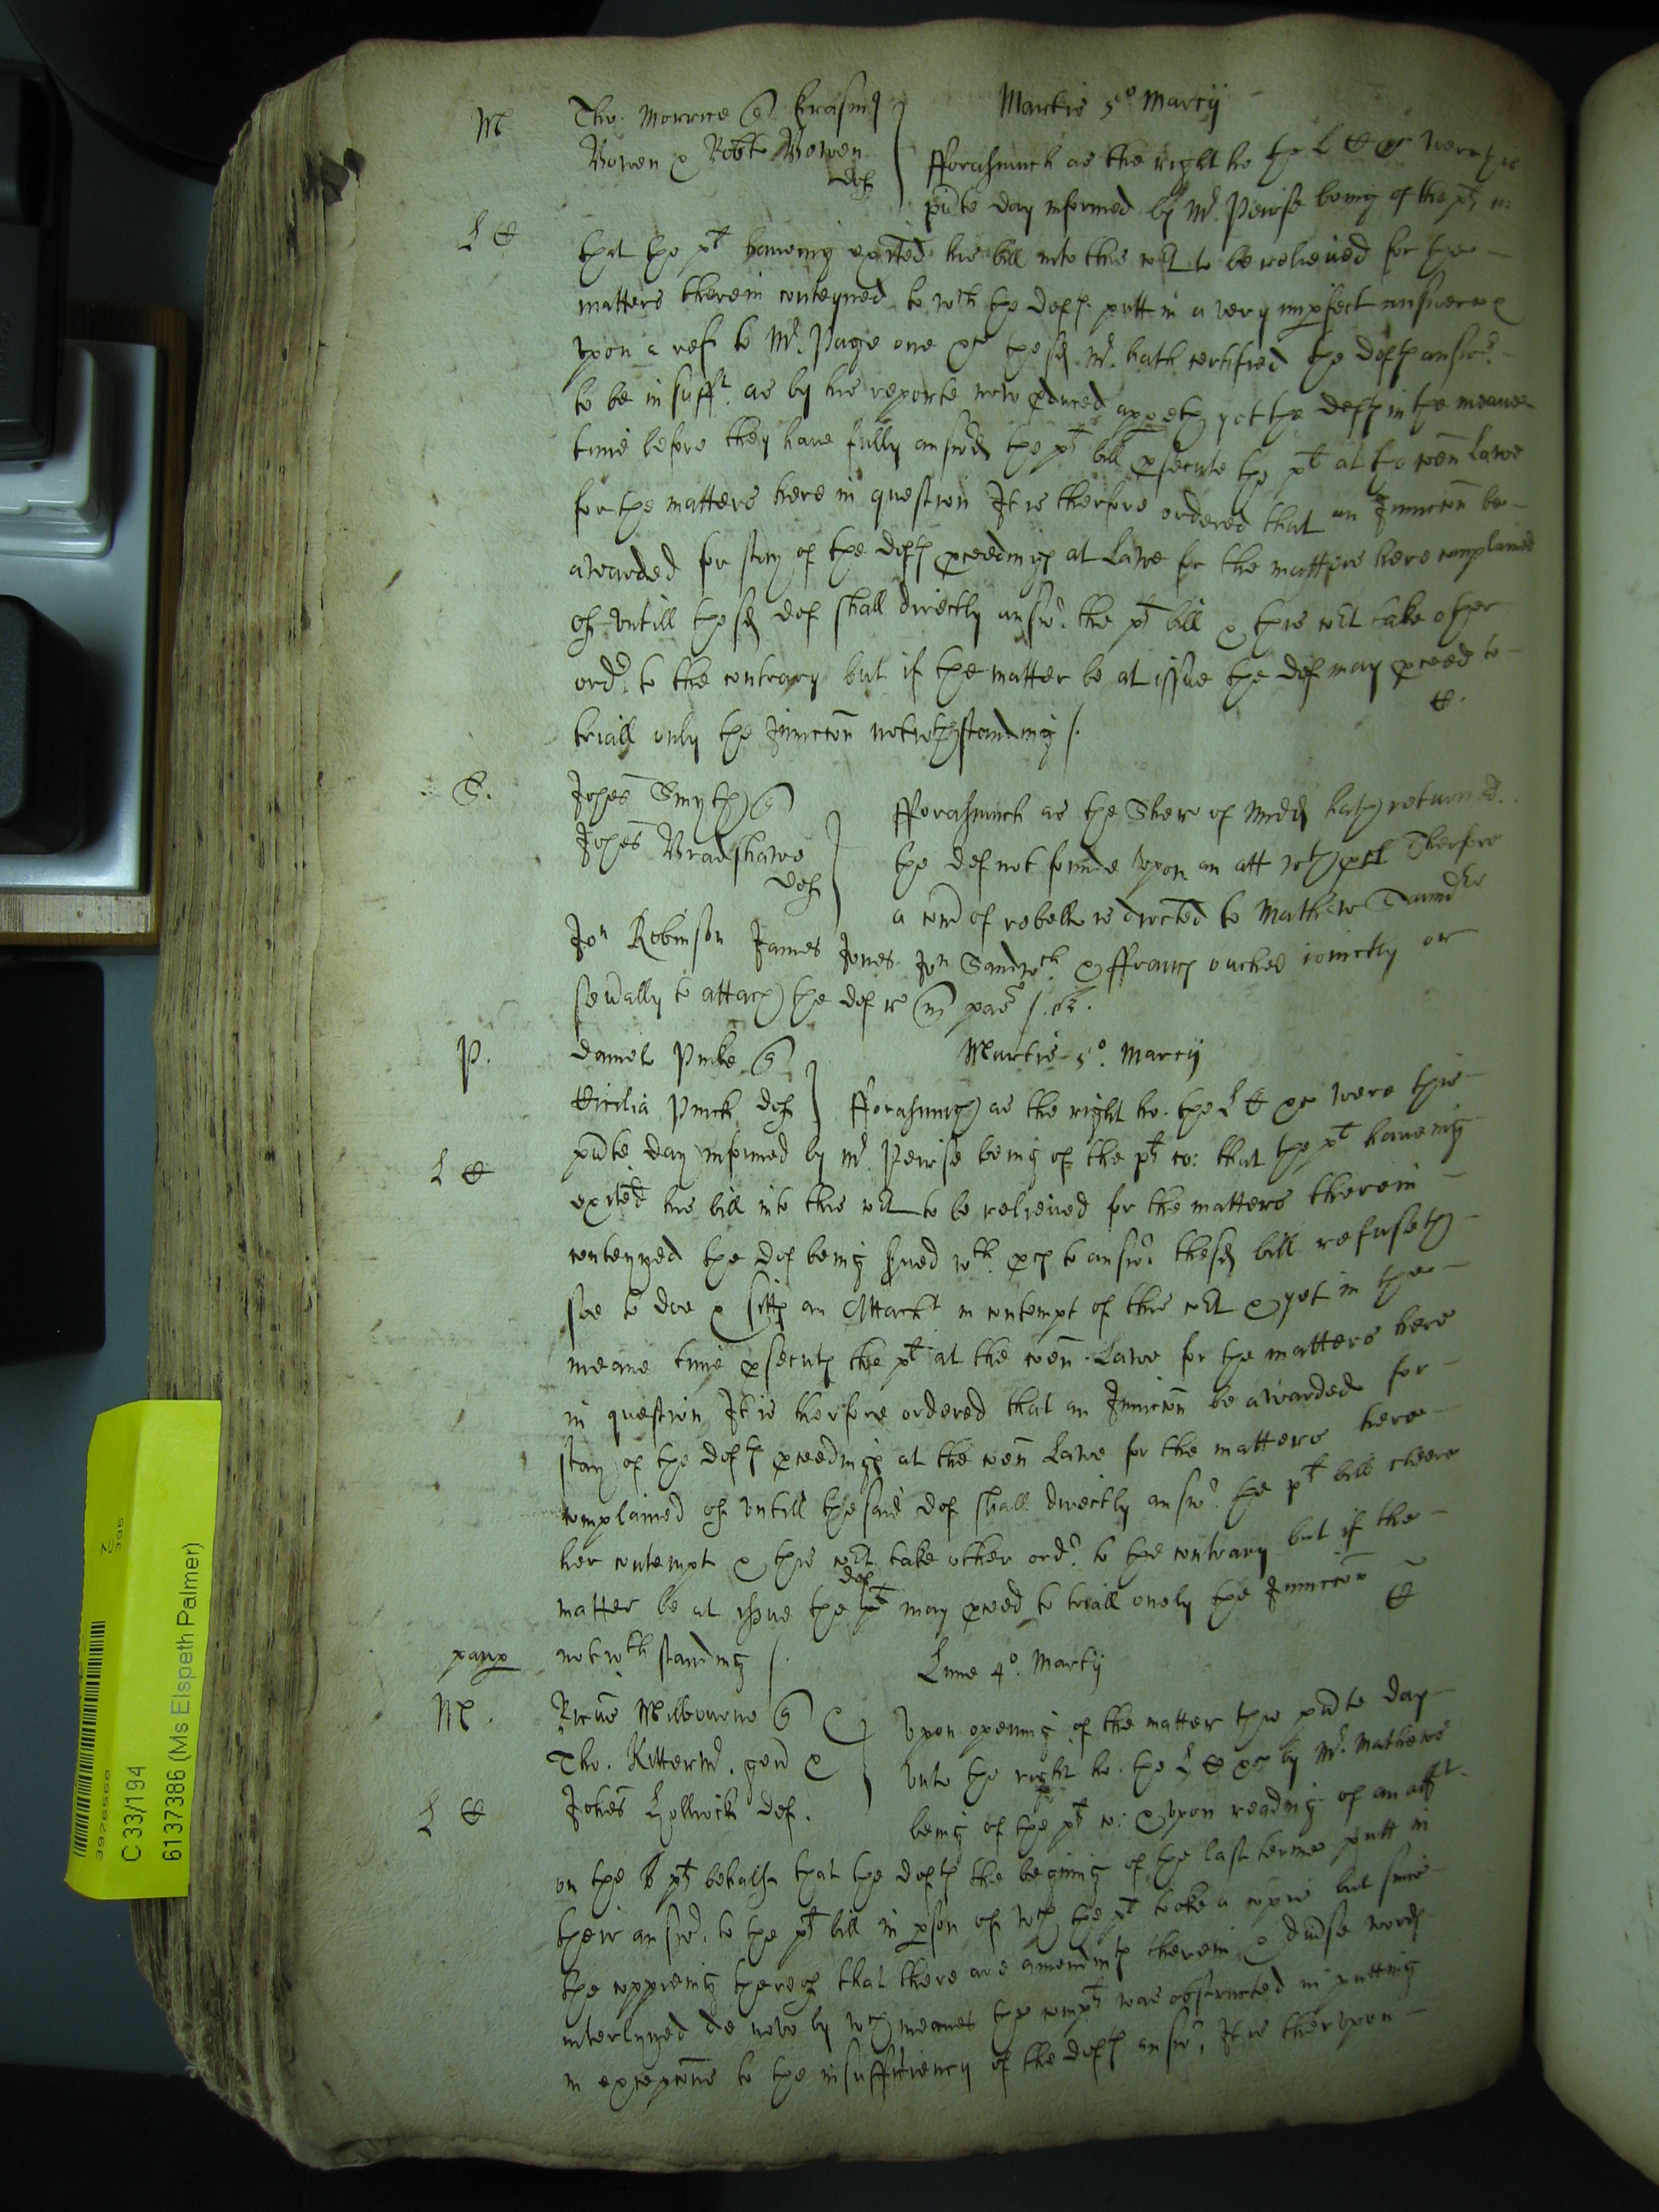 Martis 5º Marcij
M Tho. Morrice q Erasm
Bowen & Robte Bowen
def
fforasmuch as the right ho the L C &c were this
pnte day informed by Mr. Peirse being of the plts co:
L C
that the plt haveing exited his bill into this cort to be relieued for the
matters therein conteyned to wch the defts putt in a very imperfect answere &
vpon a refr to Mr. Page one &c the sd Mr. hath certified the defts answr.
to be insufft. as by his reporte now pduced appeth yet the defts in the meane
time before they haue fully answrd the plts bill psecute the plt at the comon Lawe
for the matters here in question It is therfore ordered that an Iniunccon be
awarded for stay of the defts pceedings at Lawe for the matters here complained
of vntill the sd def shall directly answr. the plts bill & this cort take other
ordr. to the contrary but if the matter be at issue the def may pceed to
triall only the Iniunccon notwthstanding /.
C.
S. Johes Smyth q
Johes Bradshawe
def
fforasmuch as the Sher of Midd hath returned
the def not founde vpon an att wth pcl Therfore
a com of rebell is directed to Mathew Saunders
Jon Robinson James Jones Jon Sandwch & ffranc ouches ioinctly or
seually to attach the def
P. Daniel Pinke q
Martis 5º. Marcij
Cicilia Pinck def
fforasmuch as the right ho. the L C &c were this
pnte day informed by Mr. Peirse being of the plts co: that the plt haueing
L C
exited his bill into this cort to be relieued for the matters therein
conteyned the def being serued wth. pces to answr. the sd bill refuseth
soe to doe & sitts an Attachmt in contempt of this cort & yet in the
meane time psecuts the plt at the comon Lawe for the matters here
in question It is therfore ordered that an Iniunccon be awarded for
stay of the defts pceedings at the comon Lawe for the matters here
complained of vntill the said def shall directly answr. the plts bill cleere
her contempt & this cort take other ordr. to the contrary but if the
def
matter be at issue the plt may pceed to triall onely the Iniunccon
notwth standing /.
C
paup
Lune 4º. Marcij
M. Ricus Milbourne q
Tho. Kitterm. gen &
Johes Hollwick def.
Vpon opening of the matter this pnte day
vnto the right ho. the L C &c by Mr. Mathewe
L C
being of the plts co: & vpon reading of an afft
on the plts behalfe that the defts the begining of the last terme putt in
their answr. to the plts bill in pson of wch the plt tooke a copie but since
the coppieing thereof that there are amendmts therein & diuse words
interlyned de novo by wch meanes the complt was obstructed in putting
in excepcons to the insufficiency of the defts answr. It is thervpon
C 33/194
6137386 (Ms Elspeth Palmer)